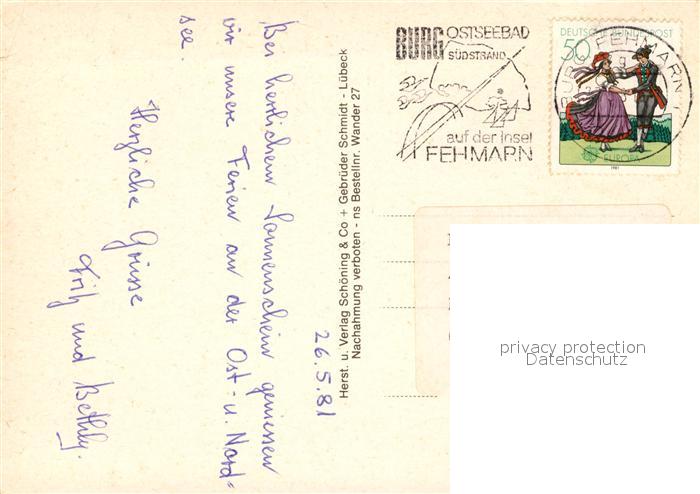 26.5.81
Bei herrlichem Sonnenschein geniessen
wir unsere Ferien an der Ost- u. Nord=
see.
Herzliche Grüsse
Fritz und Bethly.
Herst. u. Verlag Schöning & Co + Gebrüder Schmidt - Lübeck
Nachahmung verboten - ns Bestellnr. Wander 27
BURG OSTSEEBAD
SÜDSTRAND
auf der Insel
FEHMARN
DEUTSCHE BUNDESPOST
50
EUROPA
1981
BURG FEHMARN 1
privacy protection
Datenschutz